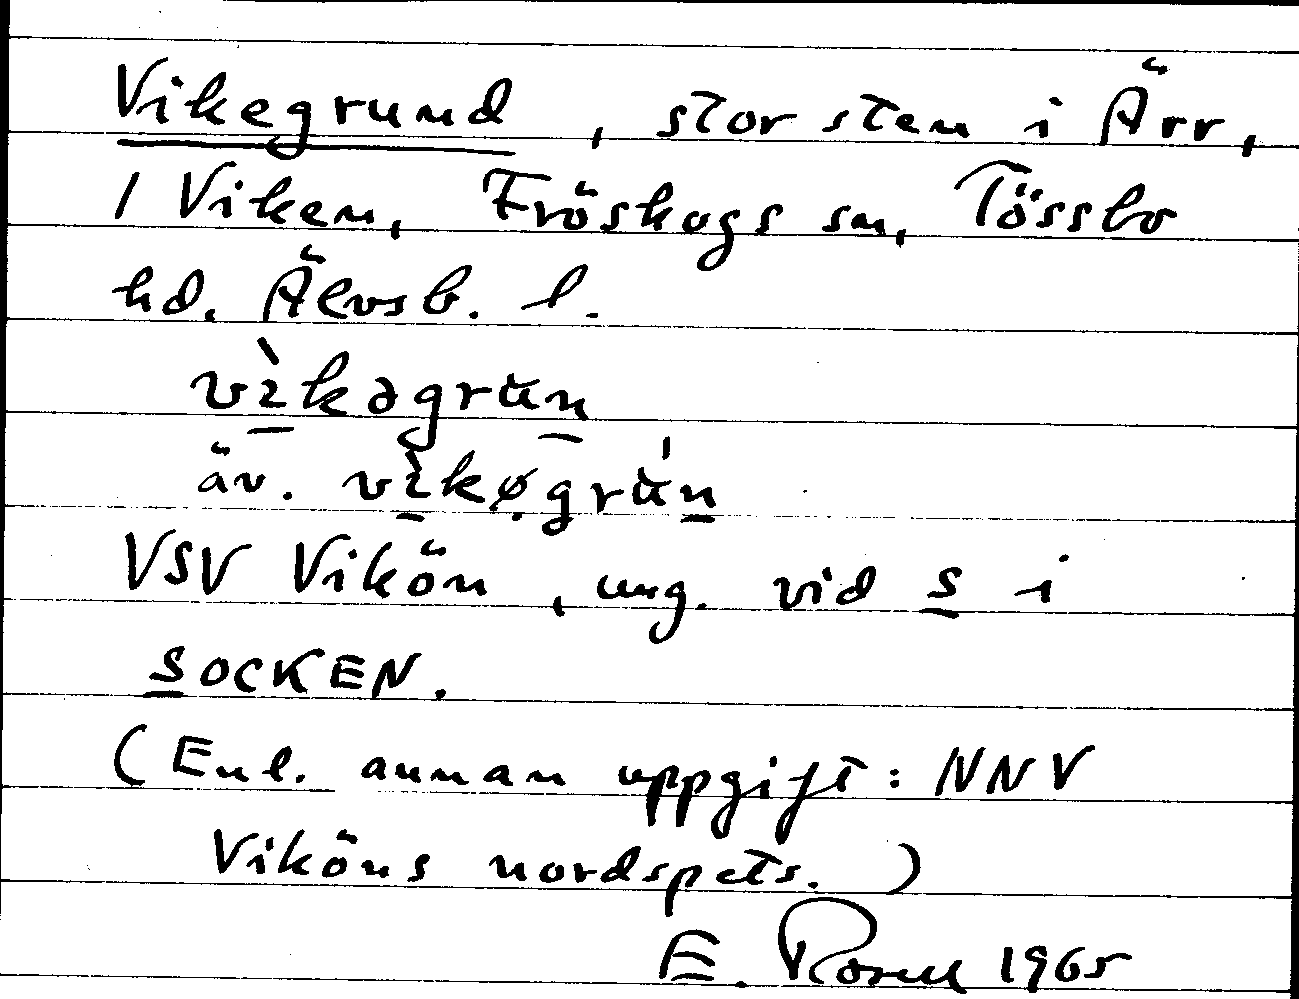 Vikegrund, stor sten i Ärr,
/ Viken, Fröskogs sn, Tössbo
hd. Älvsb. l.
vìkəgrün
äv. vìkøgrǘn
VSV Vikön, ung. vid s i
SOCKEN.
(Enl. annan uppgift: NNV
Viköns nordspets.)
E. Rosell 1965